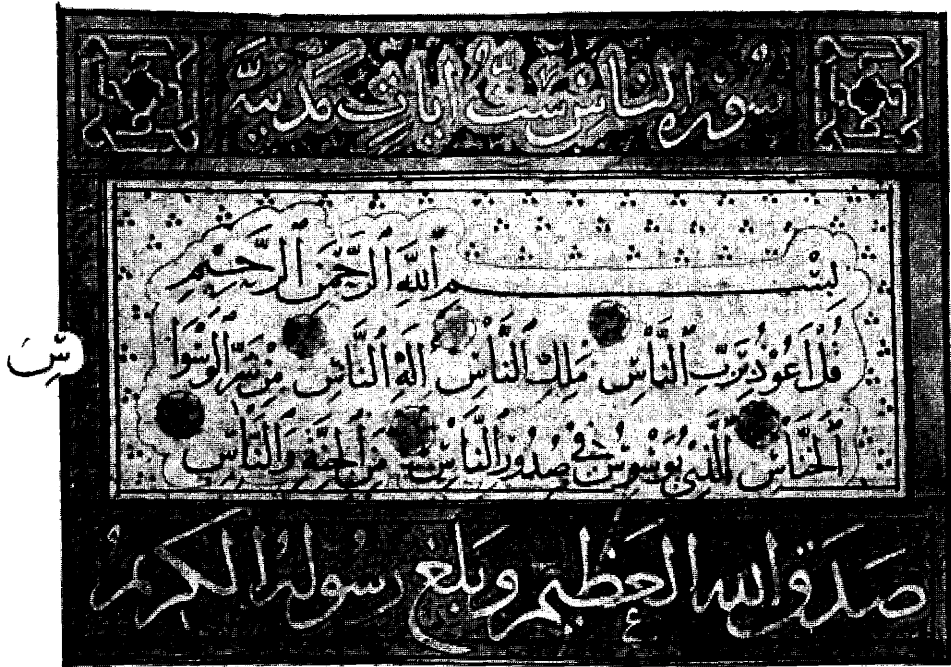 سورة الناس ست ايات مدنية
بِسْمِ ٱللَّهِ ٱلرَّحْمَٰنِ ٱلرَّحِيمِ
قُلْ أَعُوذُ بِرَبِّ ٱلنَّاسِ مَلِكِ ٱلنَّاسِ إِلَٰهِ ٱلنَّاسِ مِن شَرِّ ٱلْوَسْوَا
سِ
ٱلْخَنَّاسِ ٱلَّذِي يُوَسْوِسُ فِي صُدُورِ ٱلنَّاسِ مِنَ ٱلْجِنَّةِ وَٱلنَّاسِ
صدق الله العظيم وبلغ رسوله الكريم